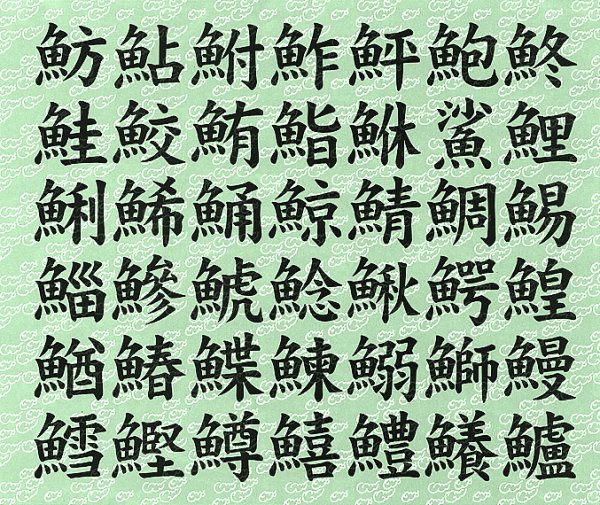 魴鮎鮒鮓鮃鮑鮗
鮭鮫鮪鮨鮴鯊鯉
鯏鯑鯒鯨鯖鯛鯣
鯔鰺鯱鯰鰍鰐鰉
鰌鰆鰈鰊鰯鰤鰻
鱈鰹鱒鱚鱧鱶鱸